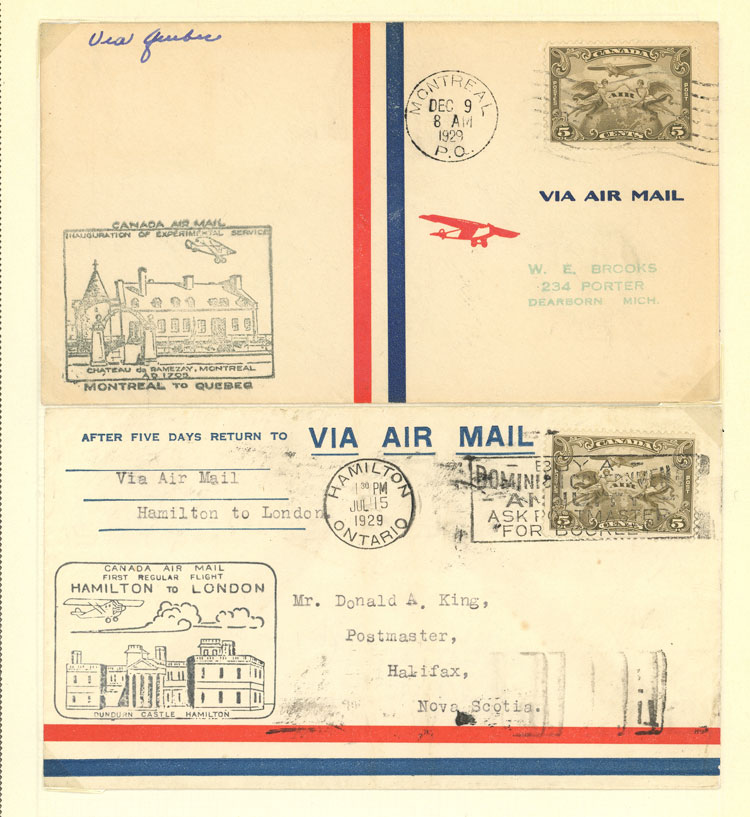 Via Quebec
MONTREAL
DEC 9
8 AM
1929
P.Q.
CANADA
POSTES
AIR
POST
5 CENTS 5
VIA AIR MAIL
W. E. BROOKS
234 PORTER
DEARBORN MICH.
CANADA AIR MAIL
INAUGURATION OF EXPERIMENTAL SERVICE
CHATEAU de RAMEZAY, MONTREAL
A.D. 1705
MONTREAL TO QUEBEC
AFTER FIVE DAYS RETURN TO
VIA AIR MAIL
Via Air Mail
Hamilton to London
HAMILTON
1 30 PM
JUL 15
1929
ONTARIO
CANADA
5 CENTS 5
DOMINI
ASK PO MASTER
FOR BOOKLE
CANADA AIR MAIL
FIRST REGULAR FLIGHT
HAMILTON TO LONDON
DUNDURN CASTLE HAMILTON
Mr. Donald A. King,
Postmaster,
Halifax,
Nova Scotia.